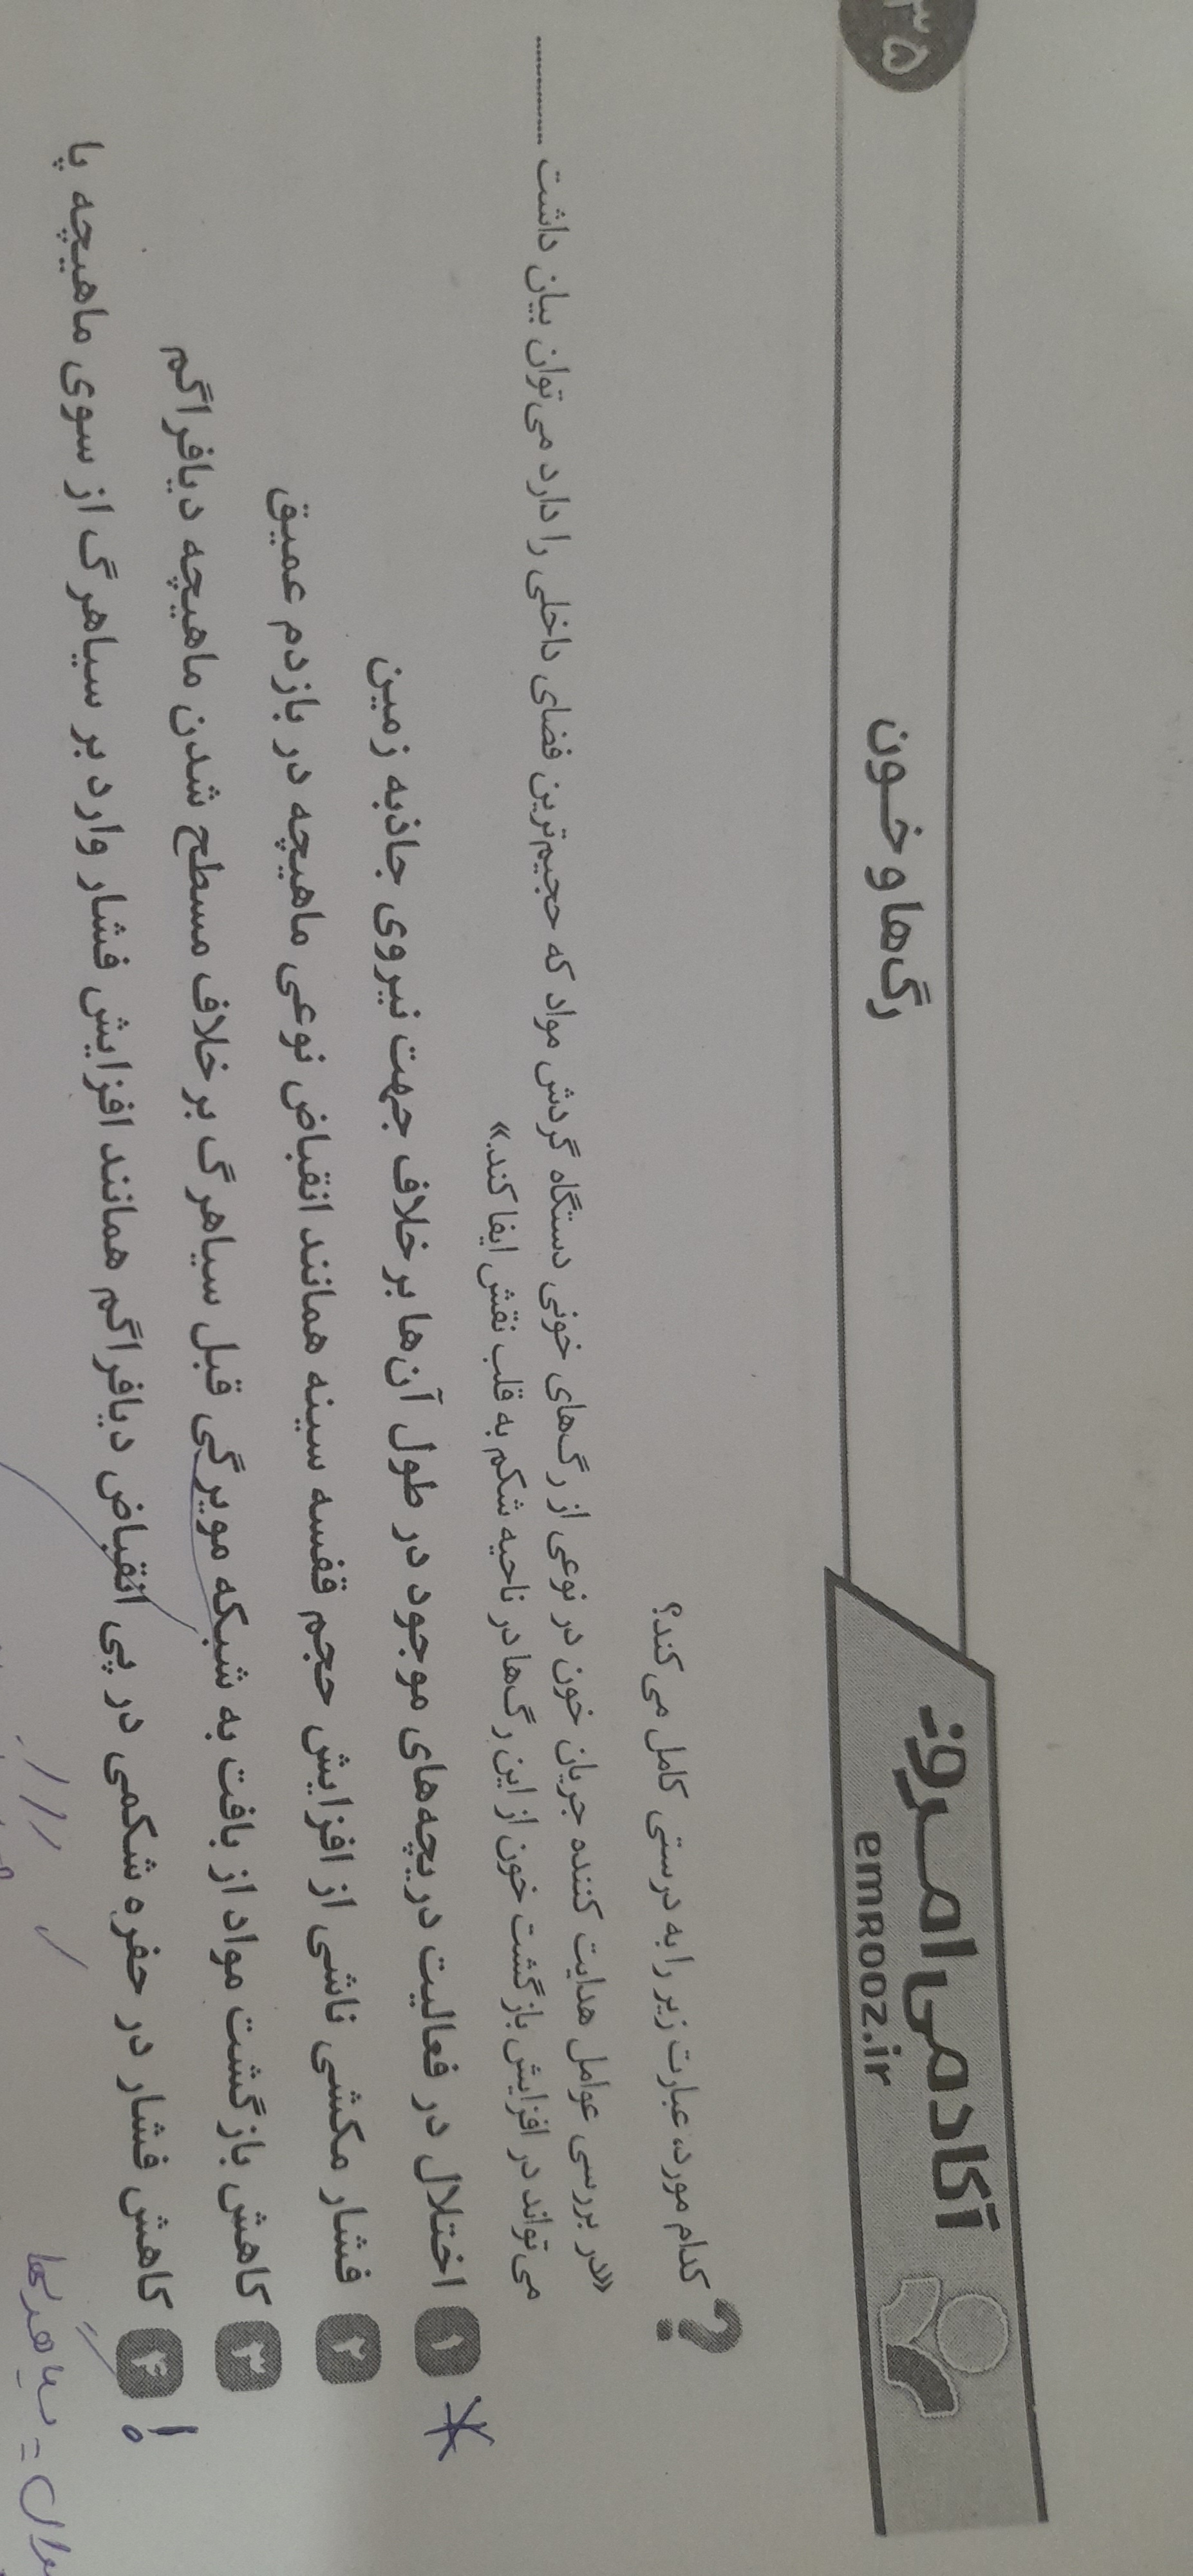 ۳۵
رگ‌ها و خون
آکادمی امروز
emROOZ.ir
? کدام مورد، عبارت زیر را به درستی کامل می‌کند؟
«در بررسی عوامل هدایت کننده جریان خون در نوعی از رگ‌های خونی دستگاه گردش مواد که حجیم‌ترین فضای داخلی را دارد می‌توان بیان داشت ............
می‌تواند در افزایش بازگشت خون از این رگ‌ها در ناحیه شکم به قلب نقش ایفا کند.»
* ۱ اختلال در فعالیت دریچه‌های موجود در طول آن‌ها برخلاف جهت نیروی جاذبه زمین
۲ فشار مکشی ناشی از افزایش حجم قفسه سینه همانند انقباض نوعی ماهیچه در بازدم عمیق
۳ کاهش بازگشت مواد از بافت به شبکه مویرگی قبل سیاهرگ برخلاف مسطح شدن ماهیچه دیافراگم
! ۴ کاهش فشار در حفره شکمی در پی انقباض دیافراگم همانند افزایش فشار وارد بر سیاهرگ از سوی ماهیچه پا